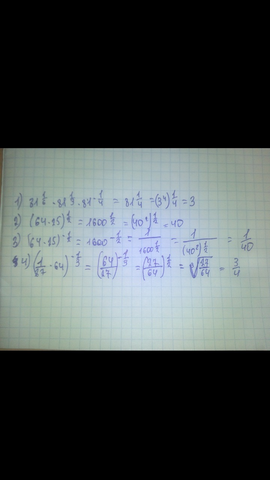 1) 81^{1/6} · 81^{1/3} · 81^{-1/4} = 81^{1/4} = (3^4)^{1/4} = 3
2) (64·25)^{1/2} = 1600^{1/2} = (40^2)^{1/2} = 40
3) (64·25)^{-1/2} = 1600^{-1/2} = 1/1600^{1/2} = 1/(40^2)^{1/2} = 1/40
4) (1/27 · 64)^{-1/3} = (64/27)^{-1/3} = (27/64)^{1/3} = ∛(27/64) = 3/4